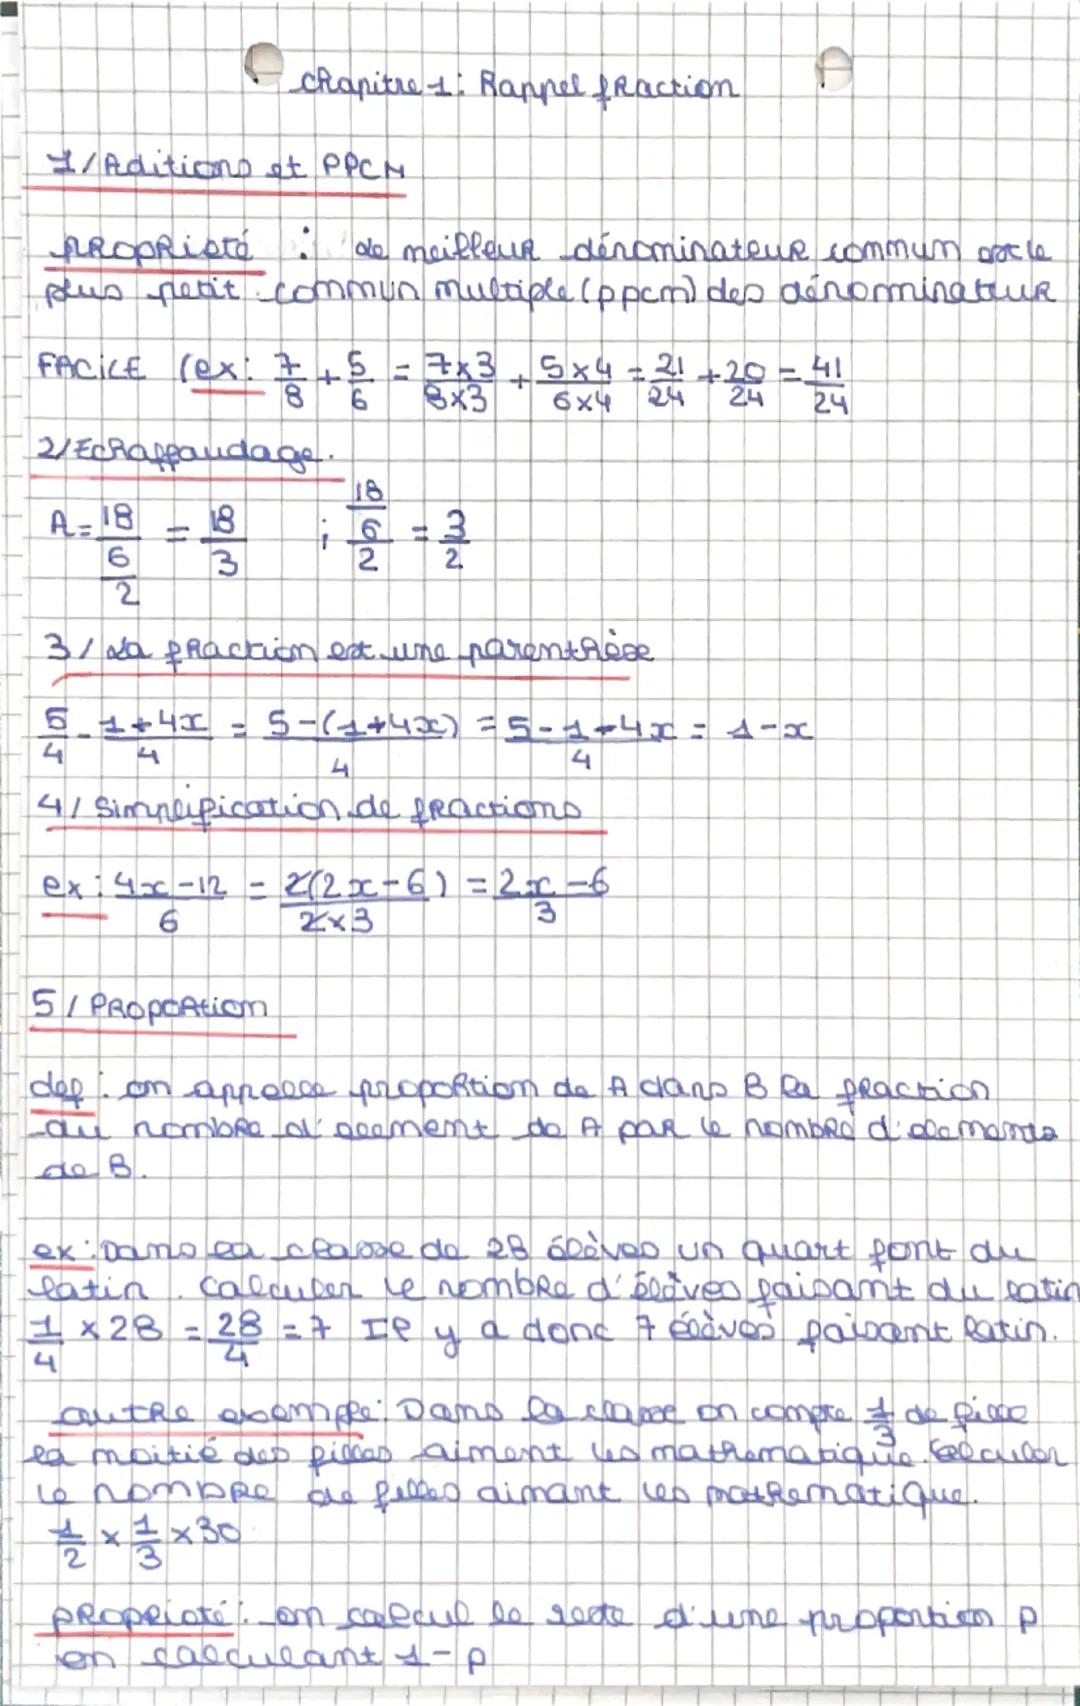 chapitre 1 : Rappel fraction
1/ Aditions et PPCM
propriété : le meilleur dénominateur commun est le
plus petit commun multiple (ppcm) des dénominateur
FACILE (ex: 7/8 + 5/6 = 7x3/8x3 + 5x4/6x4 = 21/24 + 20/24 = 41/24
2/ Echaffaudage.
A = 18/(6/2) = 18/3 ; (18/6)/2 = 3/2
3/ La fraction est une parenthèse
5/4 - (1+4x)/4 = (5-(1+4x))/4 = (5-1-4x)/4 = 1-x
4/ Simplification de fractions
ex : (4x-12)/6 = 2(2x-6)/(2x3) = (2x-6)/3
5/ Proportion
def : on appelle proportion de A dans B la fraction
du nombre d'element de A par le nombre d'elements
de B.
ex : Dans la classe de 28 élèves un quart font du
latin. Calculer le nombre d'élèves faisant du latin
1/4 x 28 = 28/4 = 7 Il y a donc 7 élèves faisant latin.
autre exemple : Dans la classe on compte 1/3 de fille
la moitié des filles aiment les mathematique. Calculer
le nombre de filles aimant les mathematique.
1/2 x 1/3 x 30
propriété : on calcul le reste d'une proportion p
en calculant 1-p